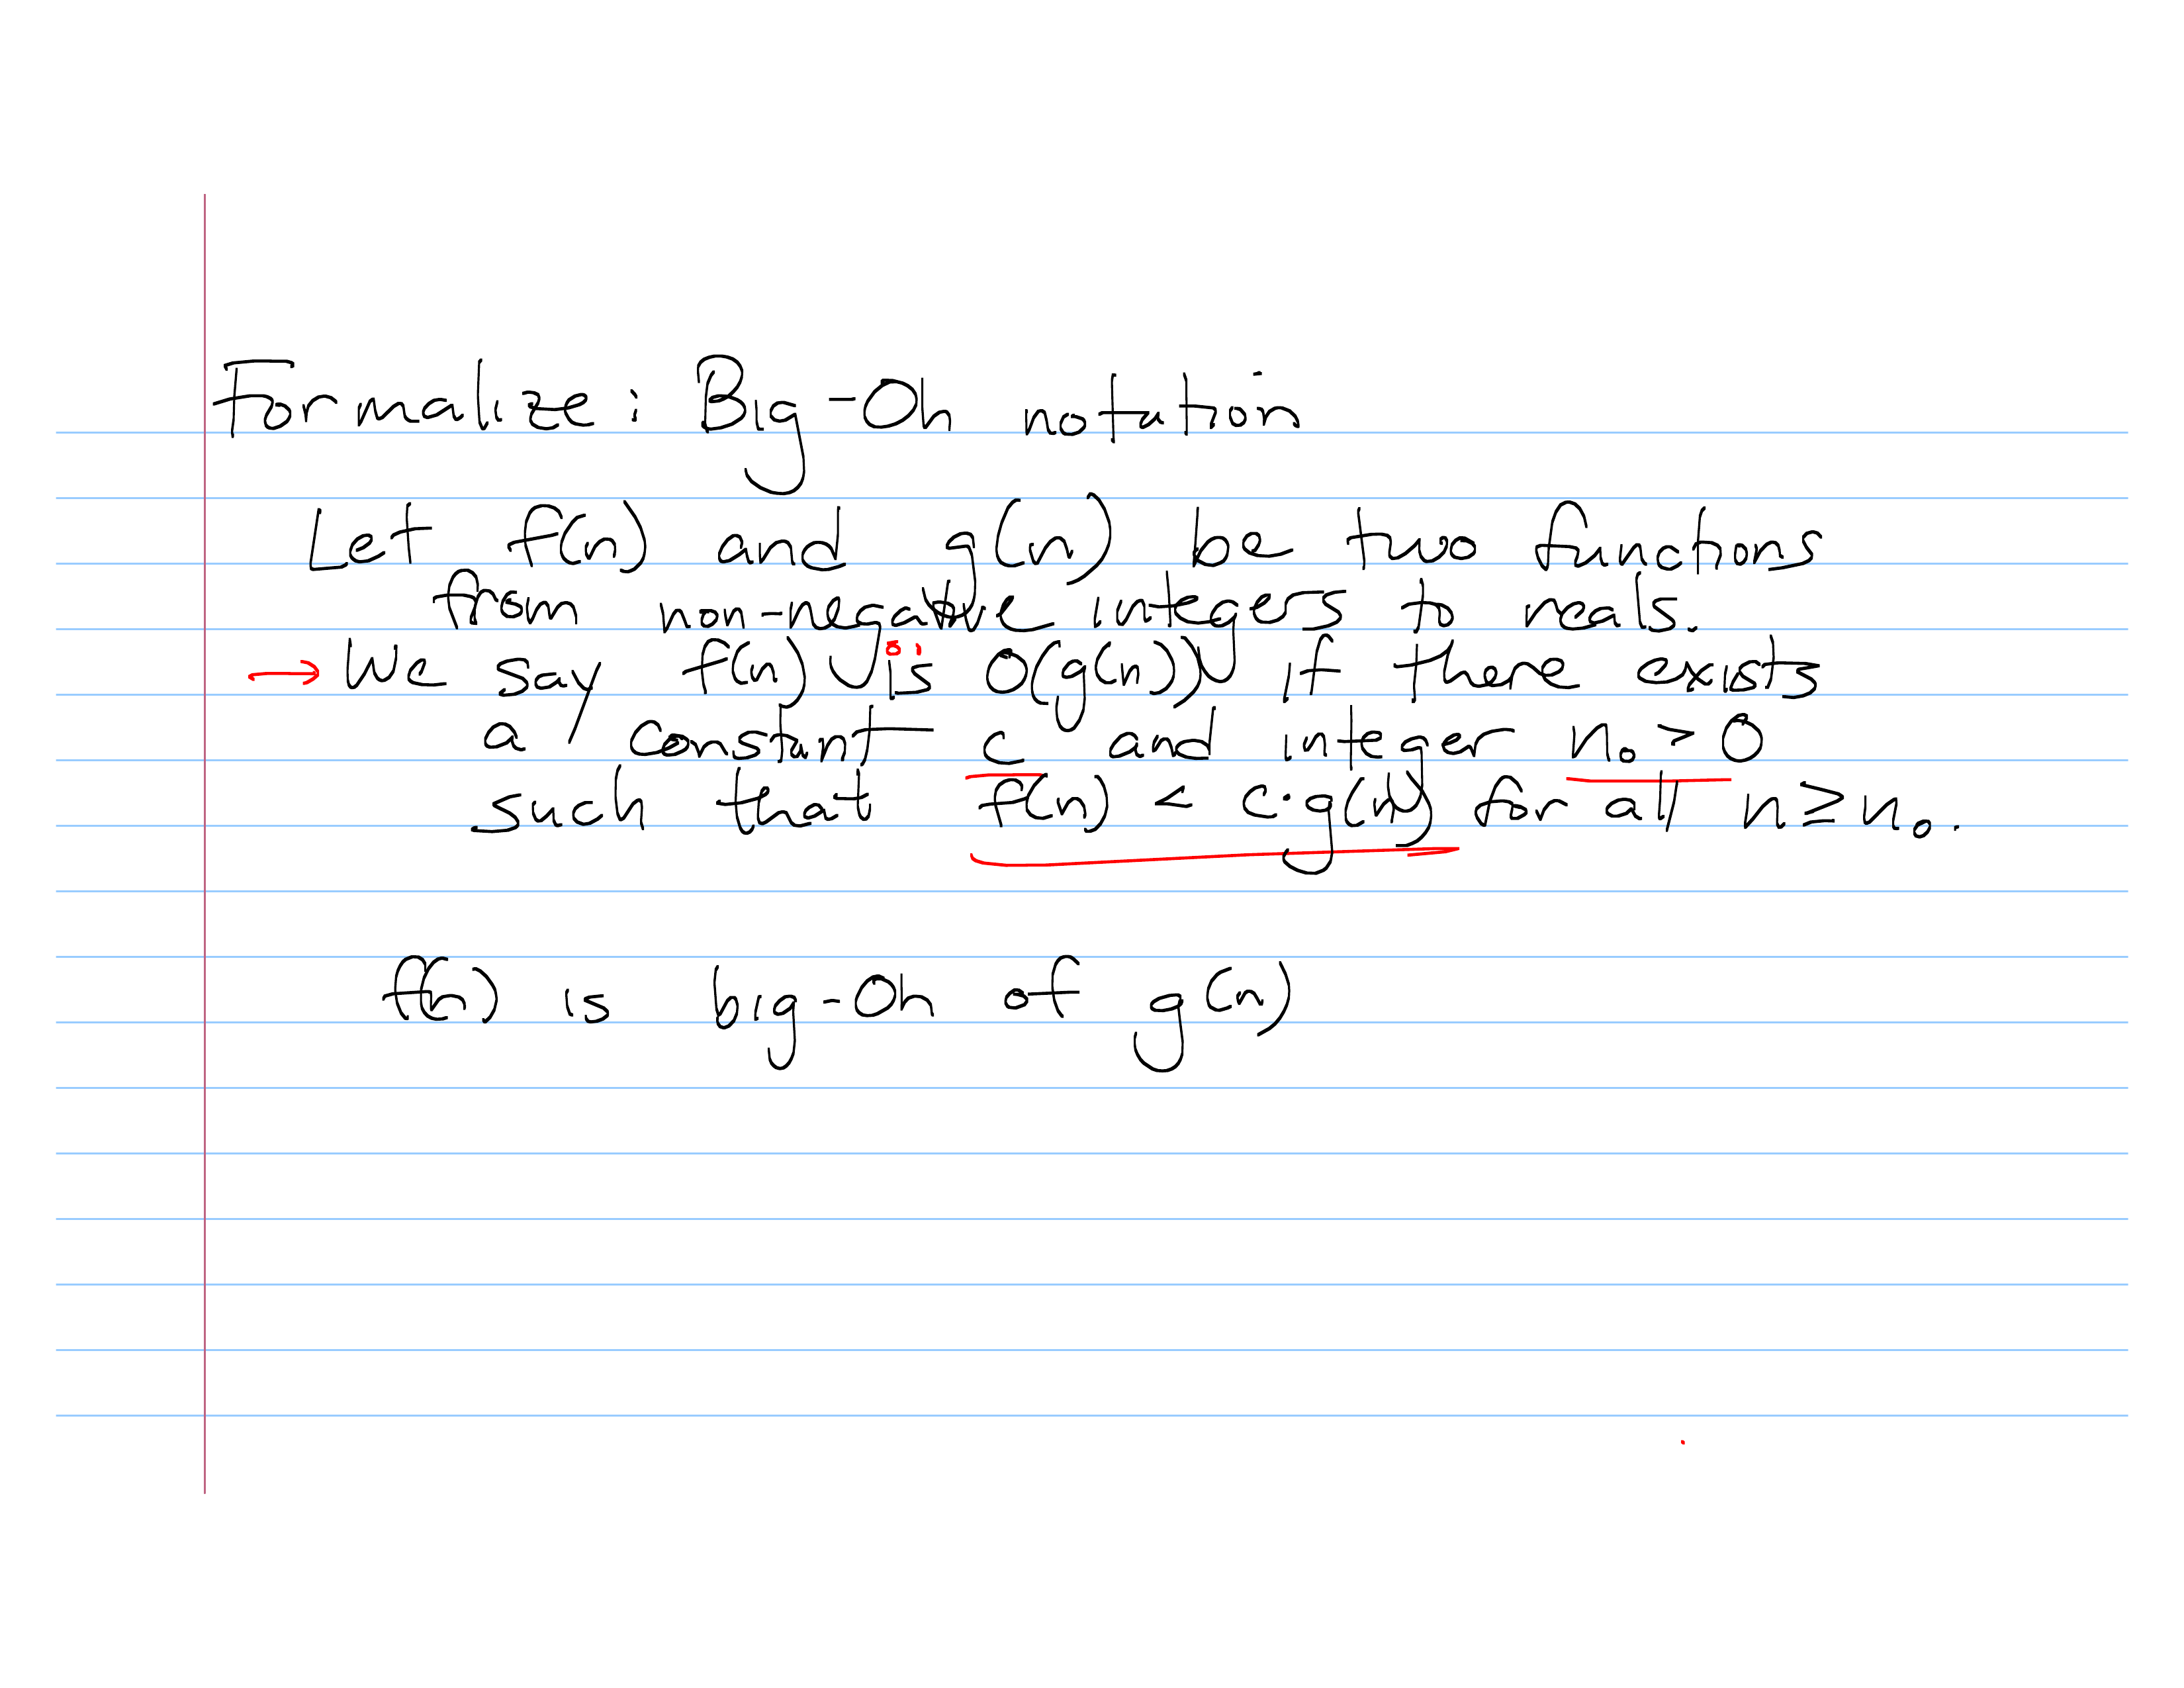 Formalize: Big-Oh notation
Let f(n) and g(n) be two functions
from non-negative integers to reals.
→ We say f(n) is O(g(n)) if there exists
a constant c and integer n₀ > 0
such that f(n) < c·g(n) for all n ≥ n₀.
f(n) is big-Oh of g(n)